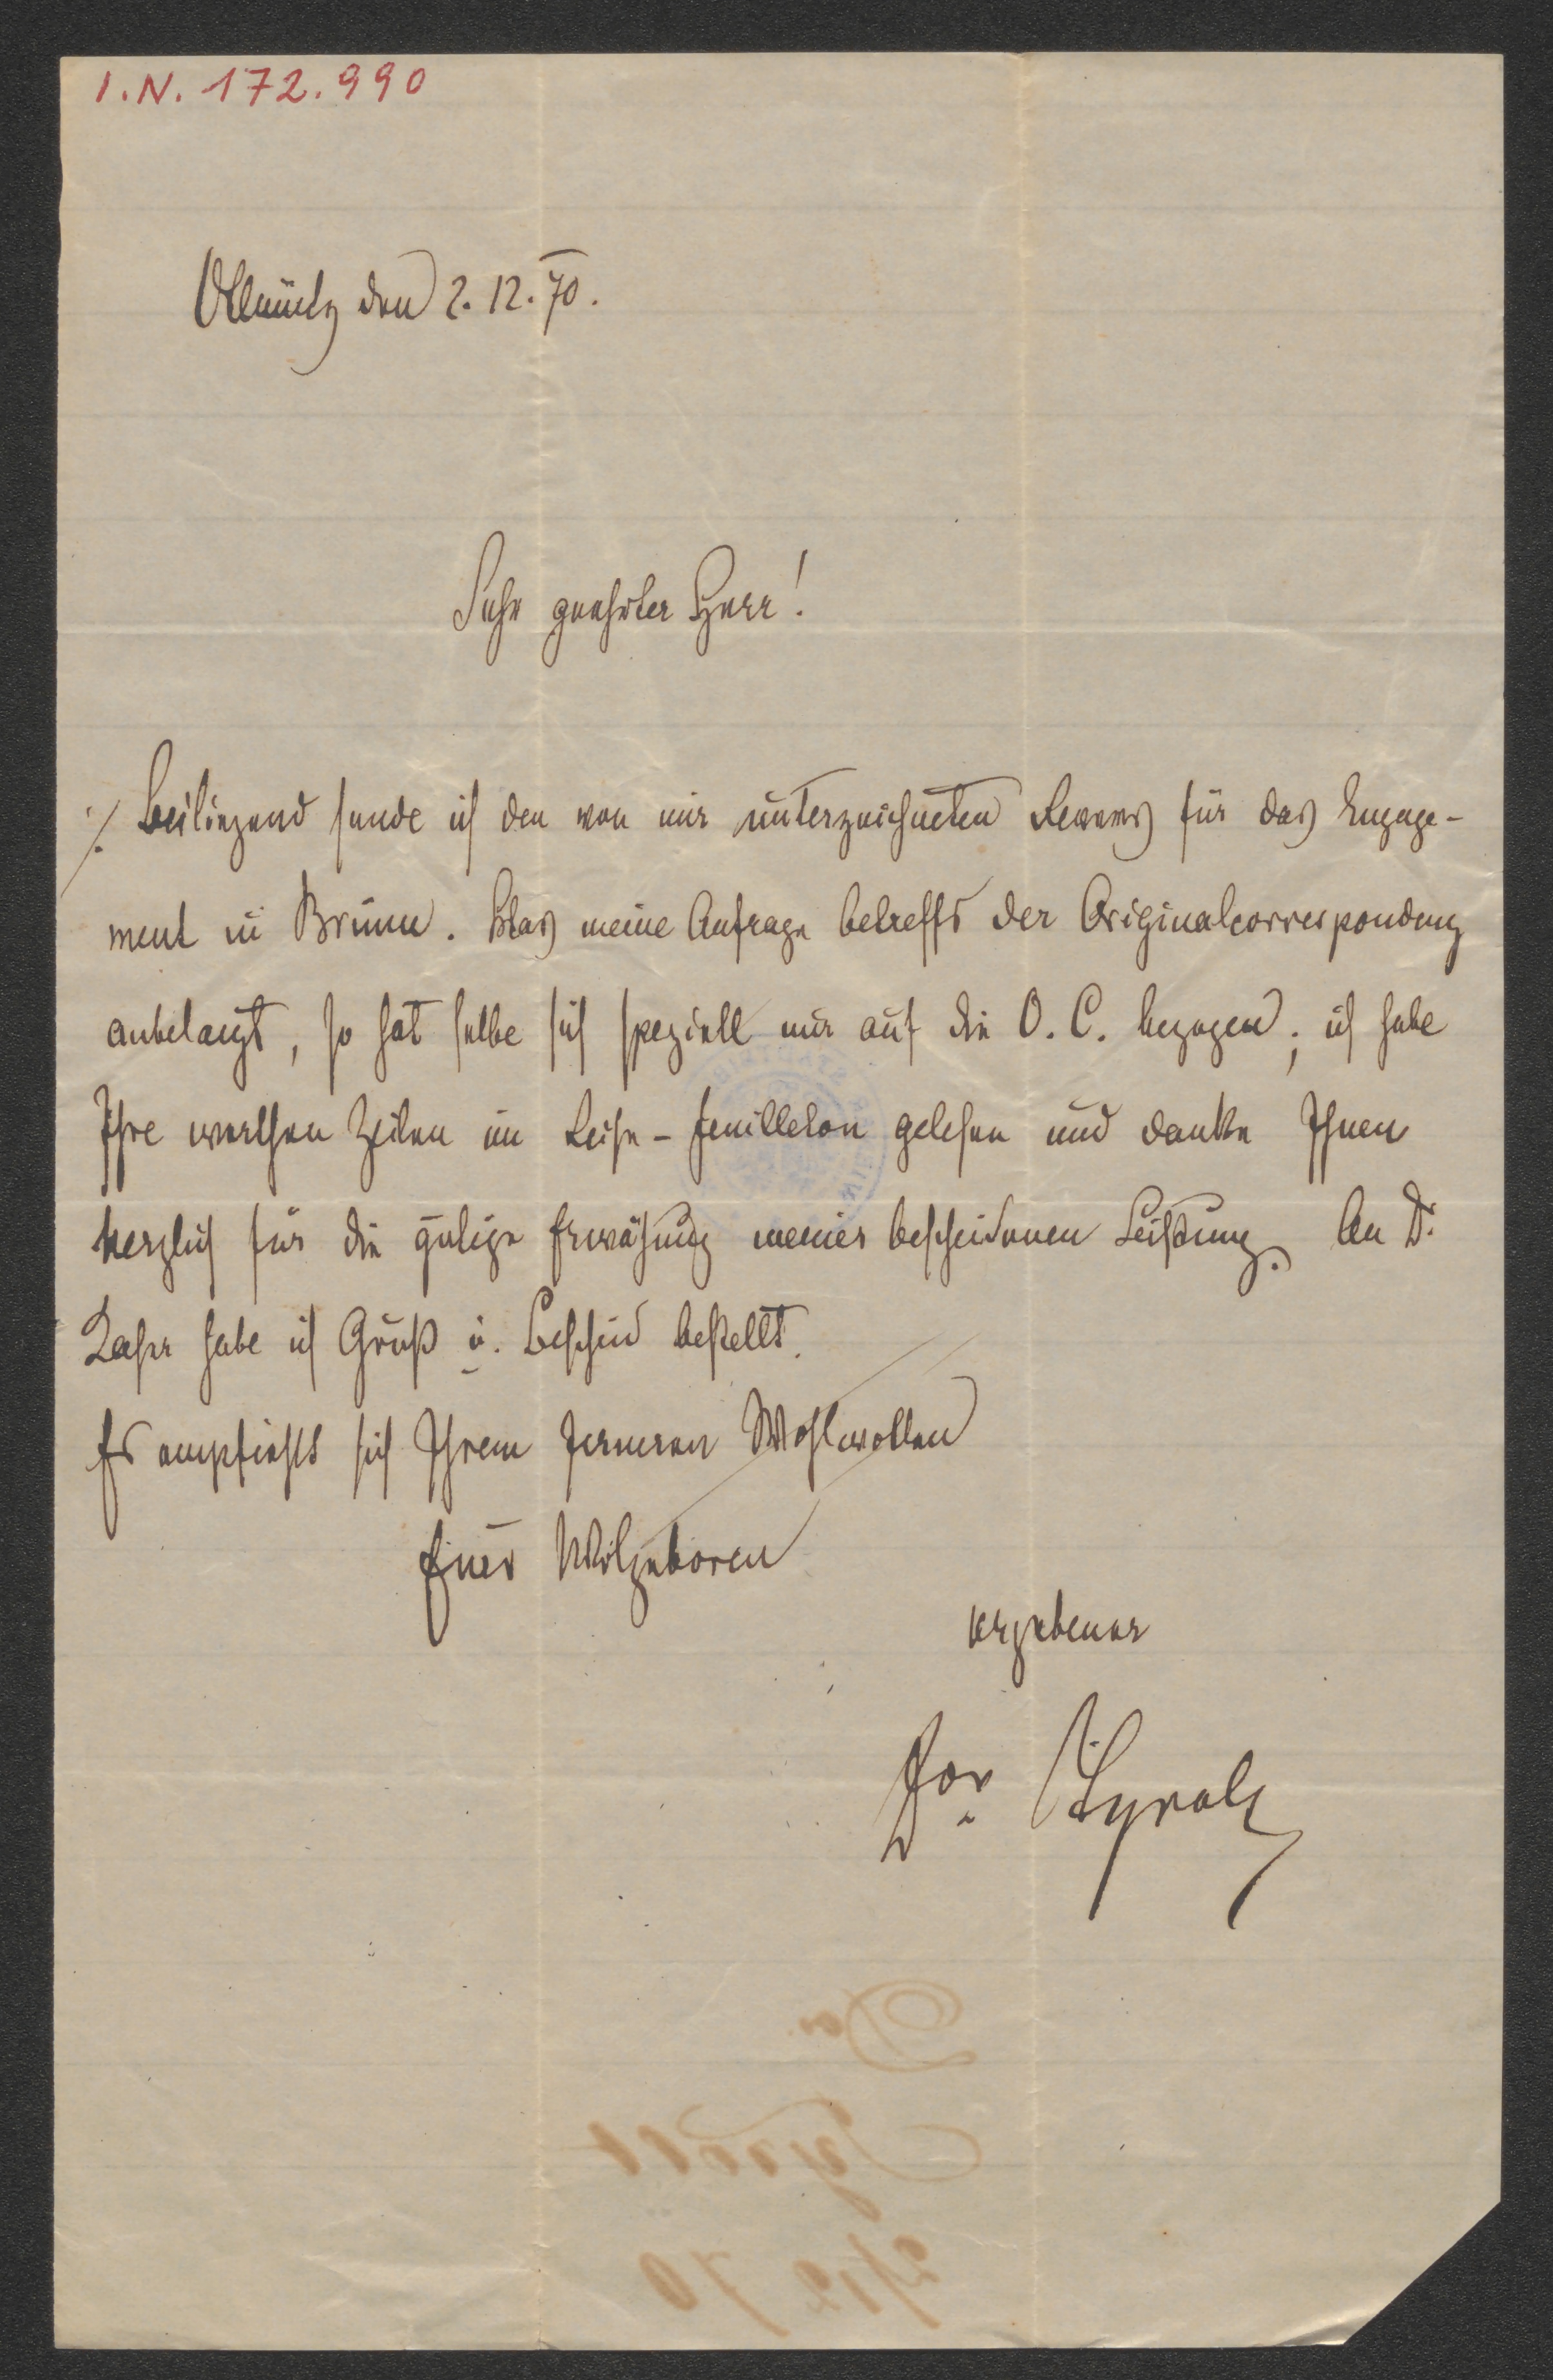 I.N. 172.990
Ollmütz den 2. 12. 70.
Sehr geehrter Herr!
./. Beiliegend sende ich den von mir unterzeichneten Revers für das Engage-
ment in Brünn. Was meine Anfrage betreffs der Originalcorrespondenz
anbelangt, so hat selbe sich speziell nur auf die O. C. bezogen; ich habe
Ihre werthen Zeilen im Reise-Feuilleton gelesen und danke Ihnen
herzlich für die gütige Erwähnung meiner bescheidenen Leistung. An Dr.
habe ich Gruß u. Bescheid bestellt.
Es empfiehlt sich Ihrem ferneren Wohlwollen
Euer Wolgeboren
ergebener